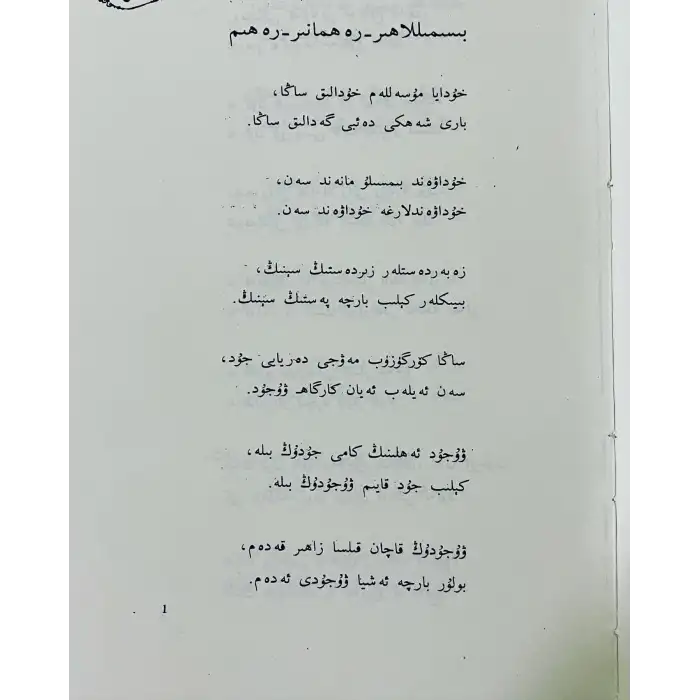 بىسمىللاھىر-رەھمانىر-رەھىم
خۇدايا مۇسەللەم خۇدالىق ساڭا،
بارى شەھكى دەئبى گەدالىق ساڭا.
خۇداۋەند بىمىسلۇ مانەند سەن،
خۇداۋەندلارغە خۇداۋەند سەن.
زەبەردەستلەر زىردەستىڭ سېنىڭ،
بىيىكلەر كېلىب بارچە پەستىڭ سېنىڭ.
ساڭا كۆرگۈزۈب مەۋجى دەريايى جۇد،
سەن ئەيلەب ئەيان كارگاھـ ۋۇجۇد.
ۋۇجۇد ئەھلىنىڭ كامى جۇدۇڭ بىلە،
كېلىب جۇد قايىم ۋۇجۇدۇڭ بىلە.
ۋۇجۇدۇڭ قاچان قىلسا زاھىر قەدەم،
بولۇر بارچە ئەشيا ۋۇجۇدى ئەدەم.
1